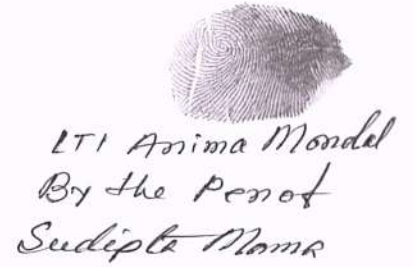 LTI Anima Mondal
By the Pen of
Sudipta